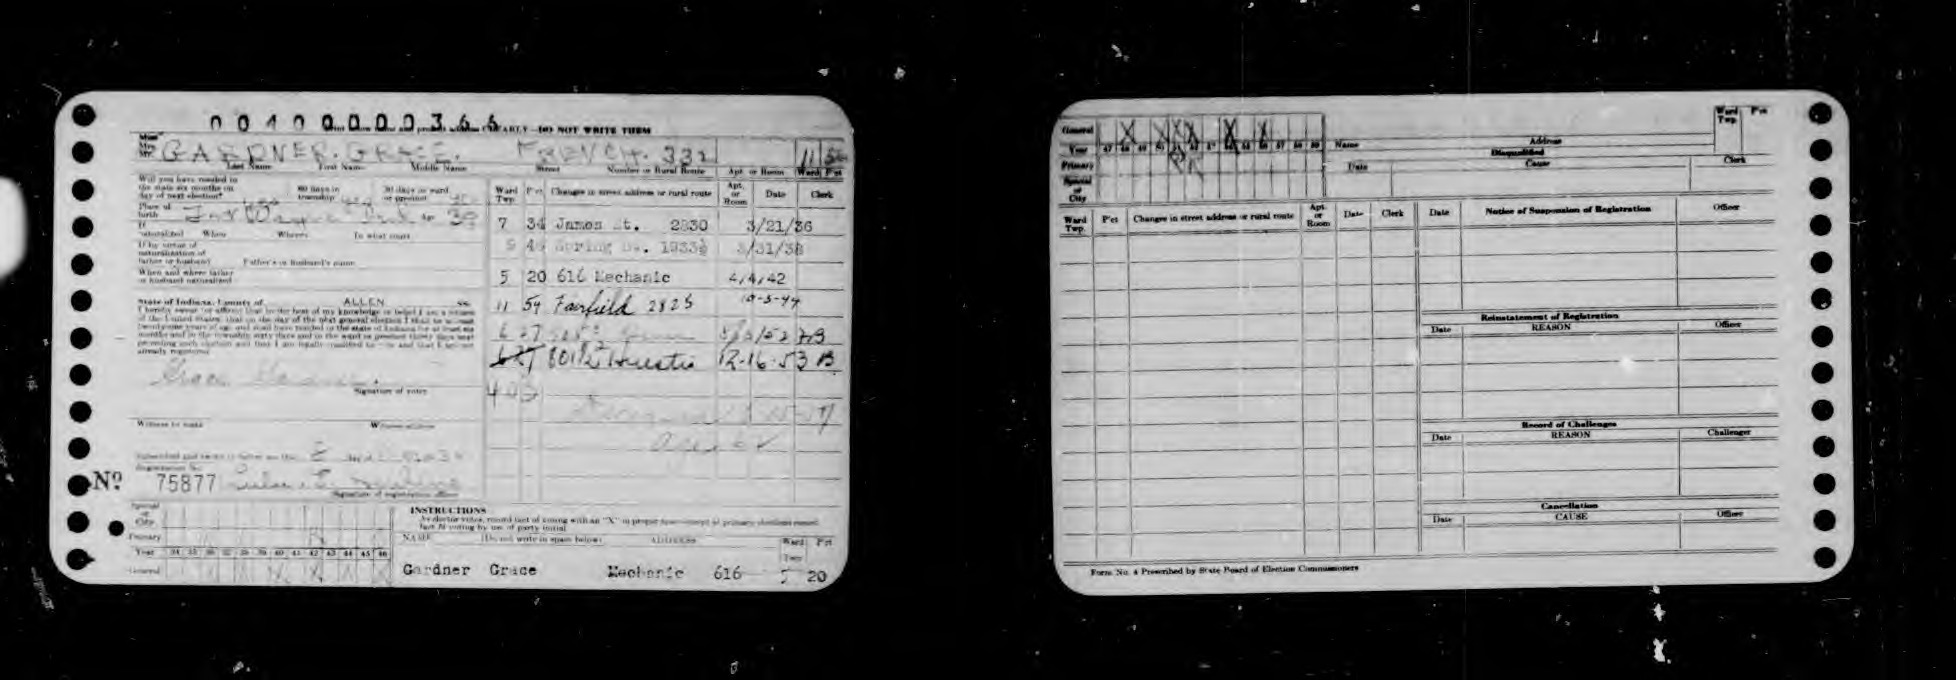 00400000366
CLEARLY—DO NOT WRITE THEM
Miss
Mrs.
Mr. GARDNER. GRACE. FRENCH. 332 11
Last Name First Name Middle Name Street Number or Rural Route Apt or Room Ward P'ct
Will you have resided in
the state six months on 60 days in 30 days in ward
day of next election? yes township yes or precinct yes
Place of
birth Fort Wayne Ind. Age 39
If
naturalized When Where To what court
If by virtue of
naturalization of
father or husband Father's or Husband's name
When and where father
or husband naturalized
State of Indiana, County of ALLEN ss.
I hereby swear (or affirm) that to the best of my knowledge or belief I am a citizen
of the United States; that on the day of the next general election I shall be at least
twenty-one years of age and shall have resided in the state of Indiana for at least six
months and in the township sixty days and in the ward or precinct thirty days next
preceding such election and that I am legally qualified to vote and that I am not
already registered
Grace Gardner.
Signature of voter
Witness to mark Witness address
Subscribed and sworn to before me this 8
Registration No.
No 75877
Signature of registration officer
Ward
Twp. P'ct Changes in street address or rural route Apt.
or
Room Date Clerk
7 34 James St. 2830 3/21/36
Spring St. 1933½ 3/31/38
5 20 616 Mechanic 4/4/42
11 54 Fairfield 2825 10-5-44
6 27
6 27 801½ Huestis 12-16-53 B
403
Special
or
City
Primary R
Year 34 35 36 37 38 39 40 41 42 43 44 45 46
General X X X X X
INSTRUCTIONS
As elector votes, record fact of voting with an "X" in proper space except at primary elections record
fact of voting by use of party initial
NAME (Do not write in space below) ADDRESS Ward
Twp P'ct
Gardner Grace Mechanic 616 5 20
General X X X X X X
Year 47 48 49 50 51 52 53 54 55 56 57 58 59
Primary R R
Special
or
City
Name Address Ward
Twp. P'ct
Disqualified
Date Cause Clerk
Ward
Twp. P'ct Changes in street address or rural route Apt.
or
Room Date Clerk
Date Notice of Suspension of Registration Officer
Reinstatement of Registration
Date REASON Officer
Record of Challenges
Date REASON Challenger
Cancellation
Date CAUSE Officer
Form No. 4 Prescribed by State Board of Election Commissioners